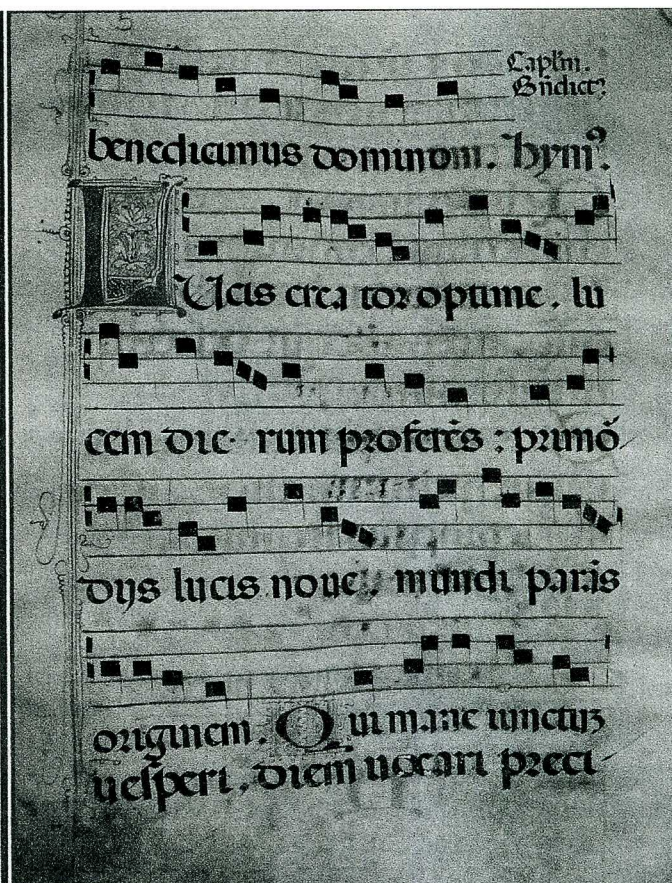 Capl'm.
Bn̄dict?
benedicamus dominom. hymꝰ.
LUcis crea tor optime. lu
cem die rum proferēs : primō
dijs lucis noue. mundi parās
originem. Qui mane iunctuȝ
uesperi. diem uocari preci